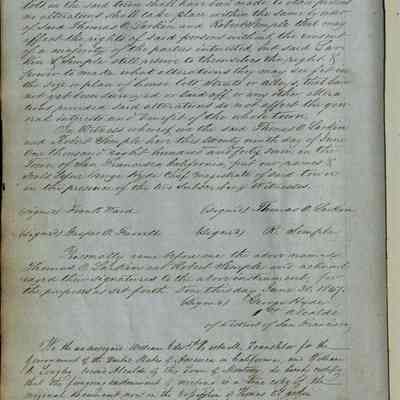 lots in the said town shall have been made to other persons
no alterations shall take place within the same by
of said Thomas O. Larkin and Robert Semple that may
affect the rights of said persons without the consent
of a majority of the parties interested, but said Lar-
kin & Semple still reserve to themselves the right &
power to make what alterations they may see fit in
the size or plan of
not yet been surveyed or laid off or any other altera
tions provided said alterations do not affect the gen
eral interests and benefit of the whole town.
In Witness whereof we the said Thomas O. Larkin
and Robert Semple have this twenty ninth day of June
One thousand eight hundred and forty seven in the
Town of San Francisco California, put our names &
Seals before George Hyde Chief Magistrate of said town
in the presence of the two subscribing Witnesses.
(signed) Frank Ward (signed) Thomas O. Larkin
(signed) Jasper O. Farrell (signed) R. Semple
Personally came before me the above named
Thomas O. Larkin and Robert Semple and acknowl
edged their signatures to the above instrument, for
the purposes as set forth this day June 30, 1847.
(signed) George Hyde
1st Alcalde
of District of San Francisco
We the undersigned William Translator for the
Government of the United States of America in California, and
Alcalde of the Town of Monterey do hereby certify
that the foregoing instrument of writing is a true copy of the
original document now in the possession of Thomas O. Larkin